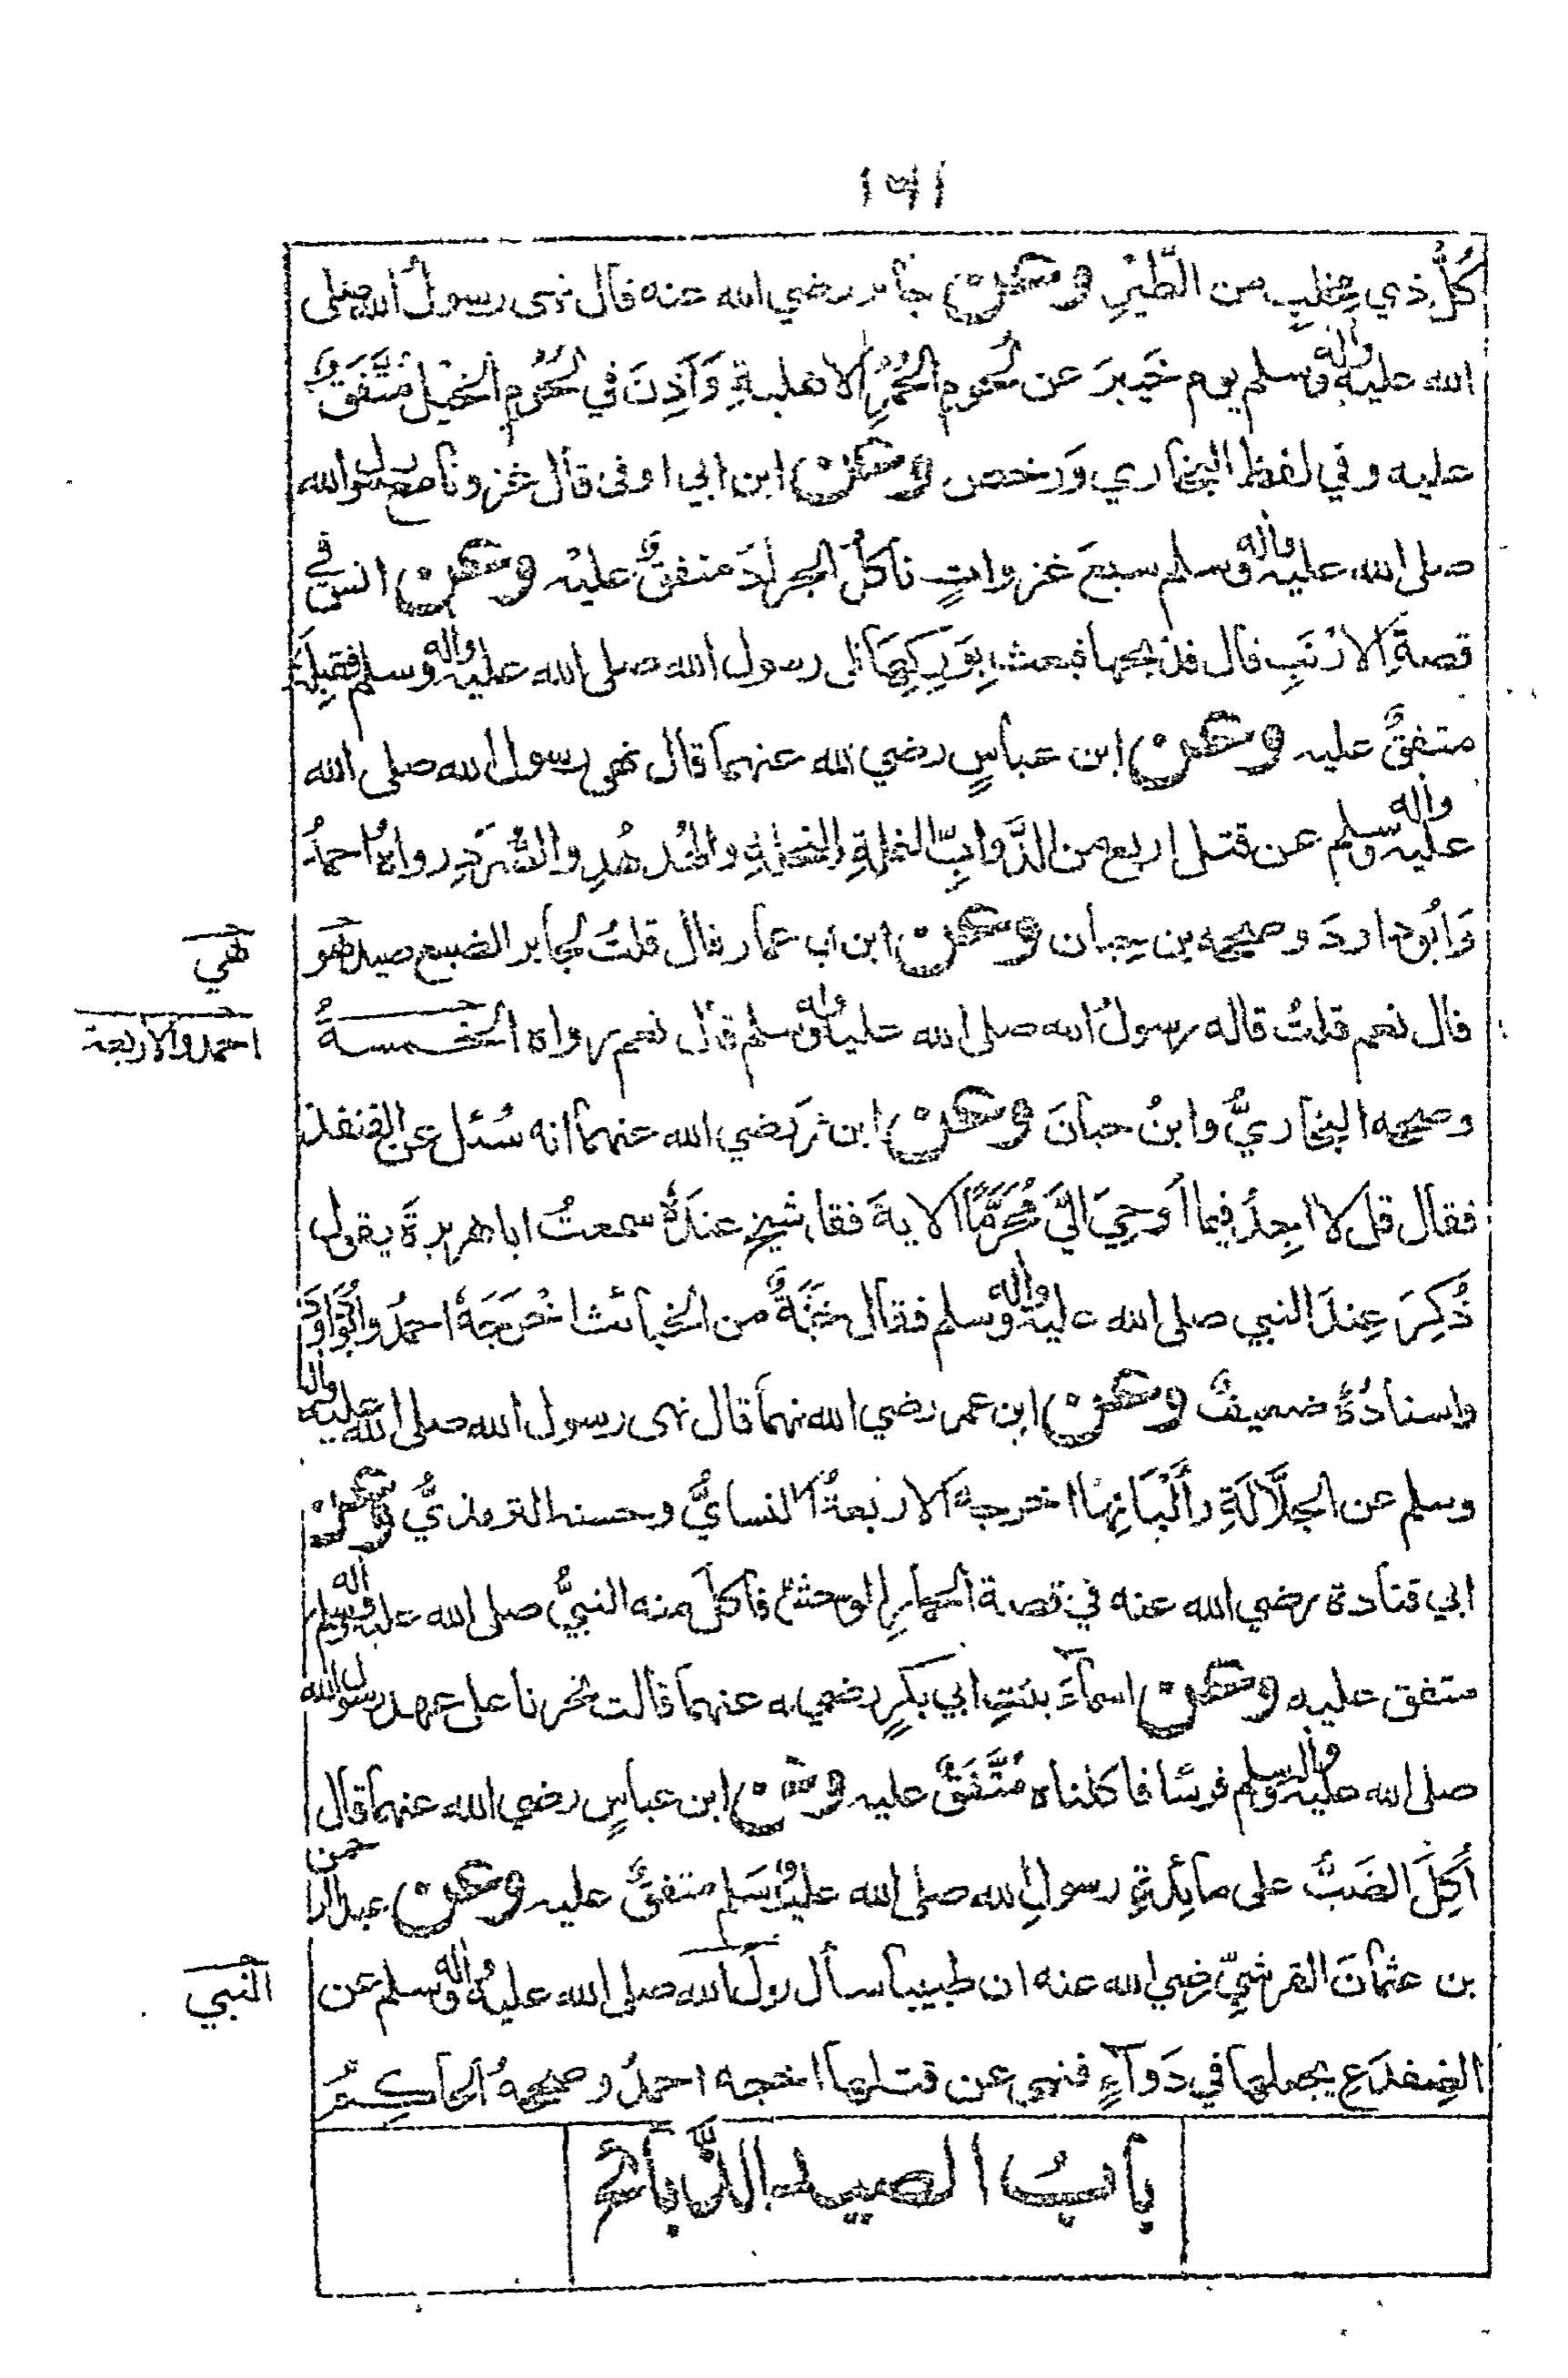 كُلُّ ذي مِخلبٍ من الطَّيْرِ وعن جابر رضي الله عنه قال نهى رسولُ الله صلى
الله عليه وآله وسلم يوم خَيبرَ عن لُحومِ الحُمُرِ الاهليةِ وَأَذِنَ في لُحُوْمِ الخَيْل مُتَّفَقٌ
عليه وفي لفظ البخاري وَرخص وعن ابن ابي اوفى قال غزونا مع رسول الله
صلى الله عليه وآله وسلم سبعَ غزواتٍ نأكلُ الجرادَ متفقٌ عليْه وعن انس في
قصةِ الارْنَبِ قال فذبحها فبعث بِوَرِكِهَا الى رسول الله صلى الله عليه وآله وسلم فقبِلَهُ
متفقٌ عليه وعن ابن عباسٍ رضي الله عنهما قال نهى رسول الله صلى الله
عليه وآله وسلم عن قتل اربع من الدَّوابِّ النملةِ والنحلةِ والهُدهُدِ والصُّرَدِ رواهُ احمدُ
وَابُو داودَ وصححه بن حِبان وعن ابن ابي عمار قال قلتُ لجابر الضبع صيد هو
هي
قال نعم قلتُ قاله رسولُ الله صلى الله عليه وآله وسلم قال نعم رواه الخمسةُ
احمد والاربعة
وصححه البخاريُّ وابنُ حبانَ وعن ابن عمر رضي الله عنهما انه سُئل عن القنفذ
فقال قل لا اجِدُ فيما أُوحِيَ اليَّ مُحَرَّمًا الاية فقال شيخ عندهُ سمعتُ ابا هريرةَ يقول
ذُكِرَ عِندَ النبي صلى الله عليه وآله وسلم فقال خبثةٌ من الخبائث اخرجَهُ احمدُ وابُو داود
واسنادُهُ ضعيفٌ وعن ابن عمر رضي الله عنهما قال نهى رسول الله صلى الله عليه وآله
وسلم عن الجلَّالَةِ وأَلْبَانِهَا اخرجه الاربعةُ الا النسايُّ وحسنه الترمذيُّ وعن
ابي قتادة رضي الله عنه في قصة الحمارِ الوحشيّ فأكلَ منه النبيُّ صلى الله عليه وآله وسلم
متفق عليه وعن اسمآءَ بنتِ ابي بكرٍ رضي الله عنهما قالت نحرنا على عهد رسول الله
صلى الله عليه وآله وسلم فرسًا فاكلناه مُتَّفَقٌ عليه وعن ابن عباسٍ رضي الله عنهما قال
أُكِلَ الضَبُّ على مائِدةِ رسولِ الله صلى الله عليه وسَلم متفقٌ عليه وعن عبد الرحمن
بن عثمانَ القرشيِّ رضي الله عنه ان طبيبا سأل رسولَ الله صلى الله عليه وآله وسلم عن
النبي
الضفدَعِ يجعلها في دَوآءٍ فنهى عن قتلها اخرجه احمدُ وصححهُ الحاكِمُ
بابُ الصيد والذَّبائح